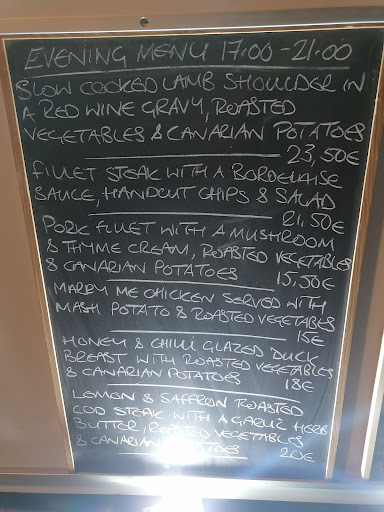 EVENING MENU 17:00 - 21:00
SLOW COOKED LAMB SHOULDER IN
A RED WINE GRAVY, ROASTED
VEGETABLES & CANARIAN POTATOES
23,50€
FILLET STEAK WITH A BORDELAISE
SAUCE, HANDCUT CHIPS & SALAD
21,50€
PORK FILLET WITH A MUSHROOM
& THYME CREAM, ROASTED VEGETABLES
& CANARIAN POTATOES 15,50€
MARRY ME CHICKEN SERVED WITH
MASH POTATO & ROASTED VEGETABLES
15€
HONEY & CHILLI GLAZED DUCK
BREAST WITH ROASTED VEGETABLES
& CANARIAN POTATOES 18€
LEMON & SAFFRON ROASTED
COD STEAK WITH A GARLIC HERB
BUTTER, ROASTED VEGETABLES
& CANARIAN POTATOES 20€